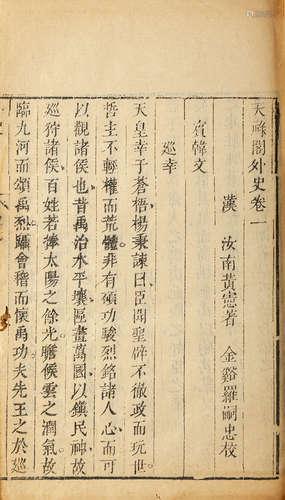 天祿閣外史卷一
漢 汝南黃憲著 金谿羅嗣忠校
賓韓文
巡幸
天皇幸于蒼梧楊秉諫曰臣聞聖辟不徹政而玩世
哲主不輕權而荒體非有碩功駿烈銘諸人心而可
以觀諸侯也昔禹治水平壤區畫萬國以鎮民神故
巡狩諸侯百姓若捧太陽之餘光瞻候雲之潤氣故
臨九河而頌禹烈躡會稽而懷禹功夫先王之於巡